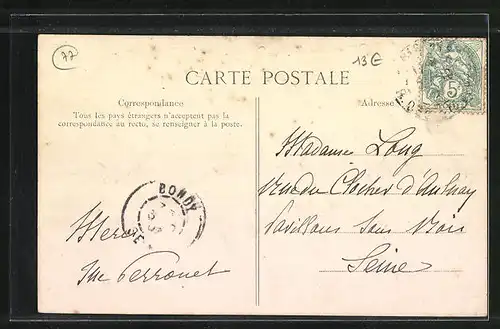 77
13€
CARTE POSTALE
Correspondance
Tous les pays étrangers n'acceptent pas la
correspondance au recto, se renseigner à la poste.
Adresse
5
Madame Long
rue du Clocher d'Aulnay
Pavillons sous Bois
Seine
BONDY
Merci
Perronet